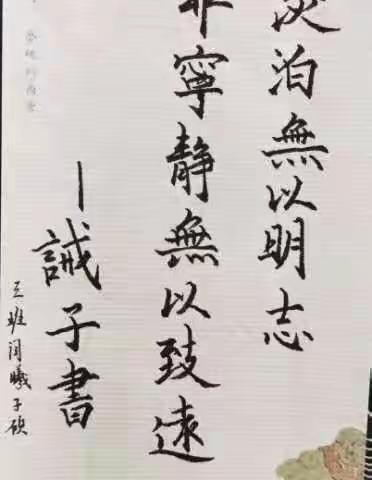 淡泊無以明志
非寧靜無以致遠
—誡子書
三班闫曦子硕